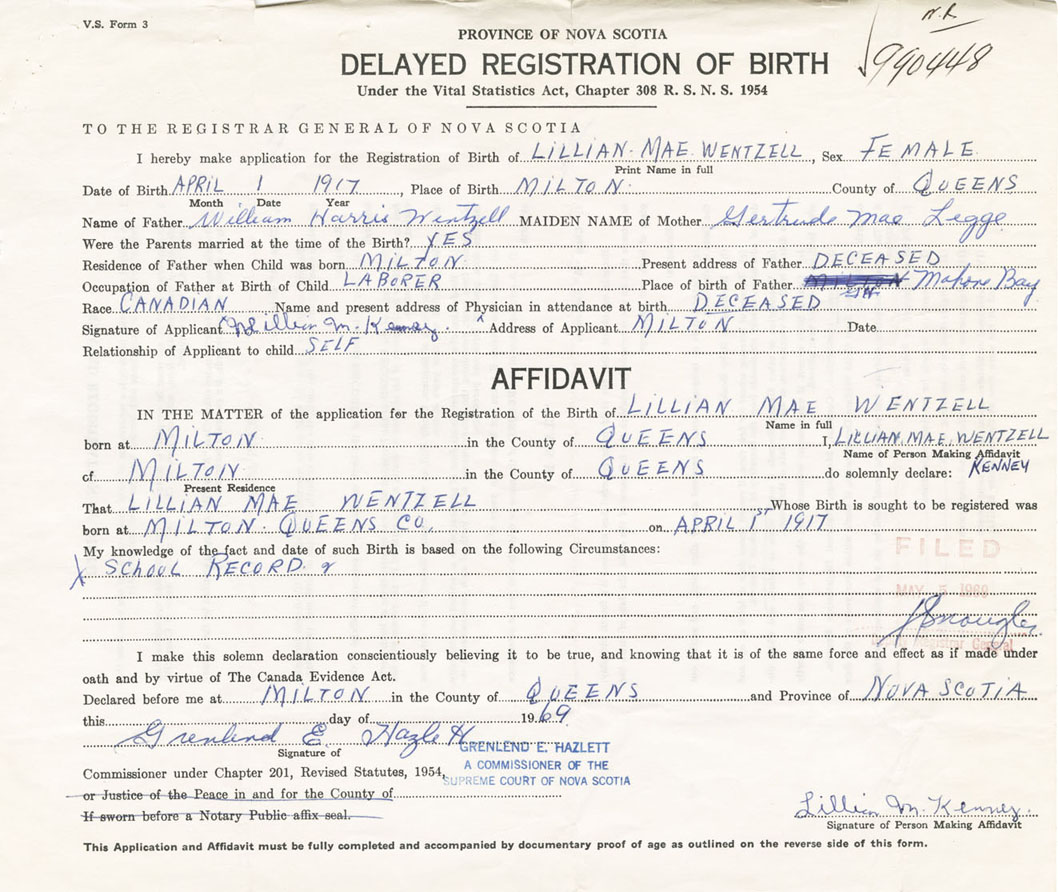 V.S. Form 3
N.R
990448
PROVINCE OF NOVA SCOTIA
DELAYED REGISTRATION OF BIRTH
Under the Vital Statistics Act, Chapter 308 R. S. N. S. 1954
TO THE REGISTRAR GENERAL OF NOVA SCOTIA
I hereby make application for the Registration of Birth of LILLIAN MAE WENTZELL, Sex FEMALE
Print Name in full
Date of Birth APRIL 1 1917, Place of Birth MILTON County of QUEENS
Month Date Year
Name of Father William Harris Wentzell MAIDEN NAME of Mother Gertrude Mae Legge
Were the Parents married at the time of the Birth? YES
Residence of Father when Child was born MILTON Present address of Father DECEASED
Occupation of Father at Birth of Child LABORER Place of birth of Father MILTON Mahone Bay
Race CANADIAN Name and present address of Physician in attendance at birth DECEASED
Signature of Applicant Lillian M. Kenney Address of Applicant MILTON Date
Relationship of Applicant to child SELF
AFFIDAVIT
IN THE MATTER of the application for the Registration of the Birth of LILLIAN MAE WENTZELL
Name in full
born at MILTON in the County of QUEENS I, LILLIAN MAE WENTZELL
Name of Person Making Affidavit
of MILTON in the County of QUEENS do solemnly declare: KENNEY
Present Residence
That LILLIAN MAE WENTZELL Whose Birth is sought to be registered was
born at MILTON QUEENS CO. on APRIL 1st 1917
My knowledge of the fact and date of such Birth is based on the following Circumstances:
X SCHOOL RECORD
FILED
MAY 5 1969
Registrar General
I make this solemn declaration conscientiously believing it to be true, and knowing that it is of the same force and effect as if made under
oath and by virtue of The Canada Evidence Act.
Declared before me at MILTON in the County of QUEENS and Province of NOVA SCOTIA
this day of 1969
Grenlend E. Hazlett
Signature of
GRENLEND E. HAZLETT
A COMMISSIONER OF THE
SUPREME COURT OF NOVA SCOTIA
Commissioner under Chapter 201, Revised Statutes, 1954,
or Justice of the Peace in and for the County of
If sworn before a Notary Public affix seal.
Lillian M. Kenney
Signature of Person Making Affidavit
This Application and Affidavit must be fully completed and accompanied by documentary proof of age as outlined on the reverse side of this form.